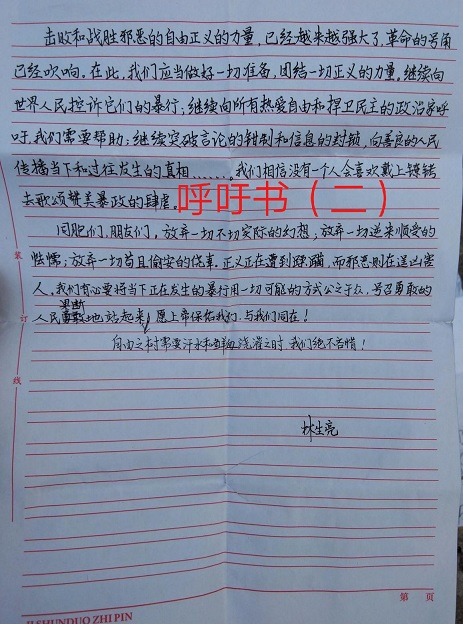 击败和战胜邪恶的自由正义的力量，已经越来越强大了，革命的号角
已经吹响。在此，我们应当做好一切准备，团结一切正义的力量。继续向
世界人民控诉它们的暴行，继续向所有热爱自由和捍卫民主的政治家呼
吁，我们需要帮助；继续突破言论的钳制和信息的封锁，向善良的人民
传播当下和过往发生的真相……，我们相信没有一个人会喜欢戴上镣铐
去歌颂赞美暴政的肆虐。
呼吁书（二）
同胞们，朋友们，放弃一切不切实际的幻想，放弃一切逆来顺受的
性懦；放弃一切苟且偷安的侥幸。正义正在遭到蹂躏，而邪恶则在逞凶害
人。我们有必要将当下正在发生的暴行用一切可能的方式公之于众，号召勇敢的
果断
人民地站起来！愿上帝保佑我们，与我们同在！
自由之树常要汗水和鲜血浇灌之时，我们绝不吝惜！
林生亮
装
订
线
第 页
JI SHUNDUO ZHI PIN